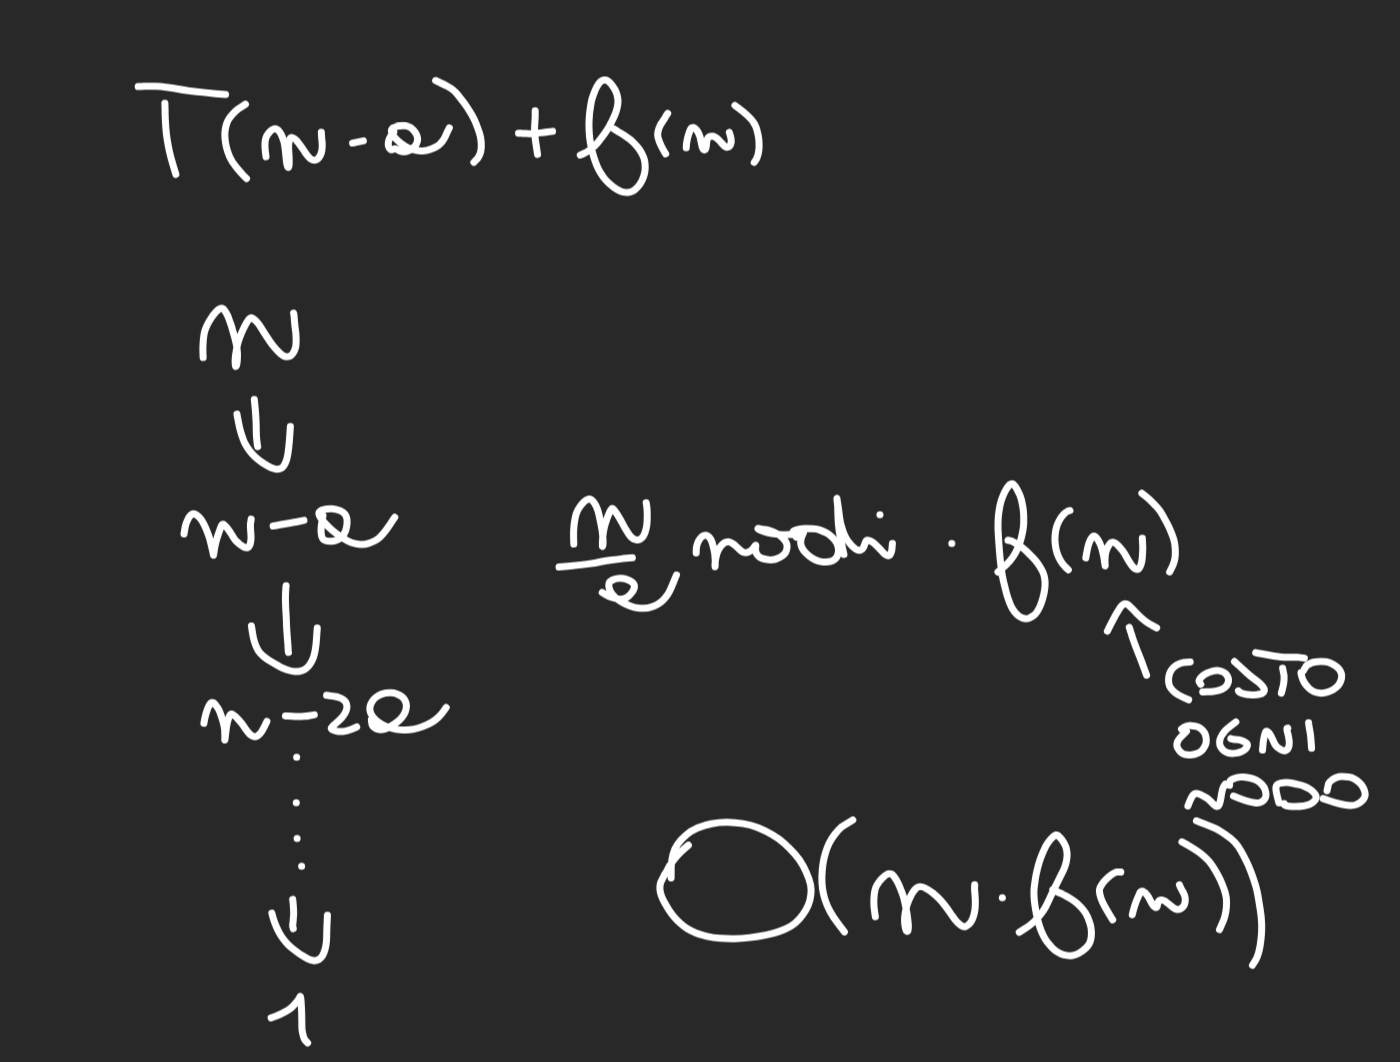 T(n-a) + f(n)
n
↓
n-a
↓
n-2a
⋮
↓
1
n/a nodi · f(n)
↑ COSTO
OGNI
NODO
O(n · f(n))